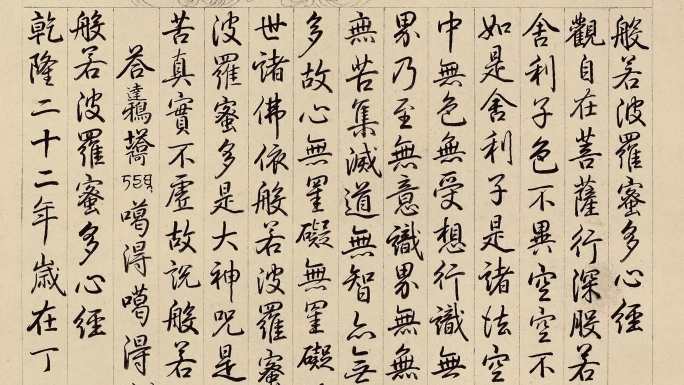 般若波羅蜜多心經
觀自在菩薩行深般若
舍利子色不異空空不
如是舍利子是諸法空
中無色無受想行識無
界乃至無意識界無無
無苦集滅道無智亦無
多故心無罣礙無罣礙
世諸佛依般若波羅蜜
波羅蜜多是大神呪是
苦真實不虛故說般若
噶得噶得
般若波羅蜜多心經
乾隆二十二年歲在丁